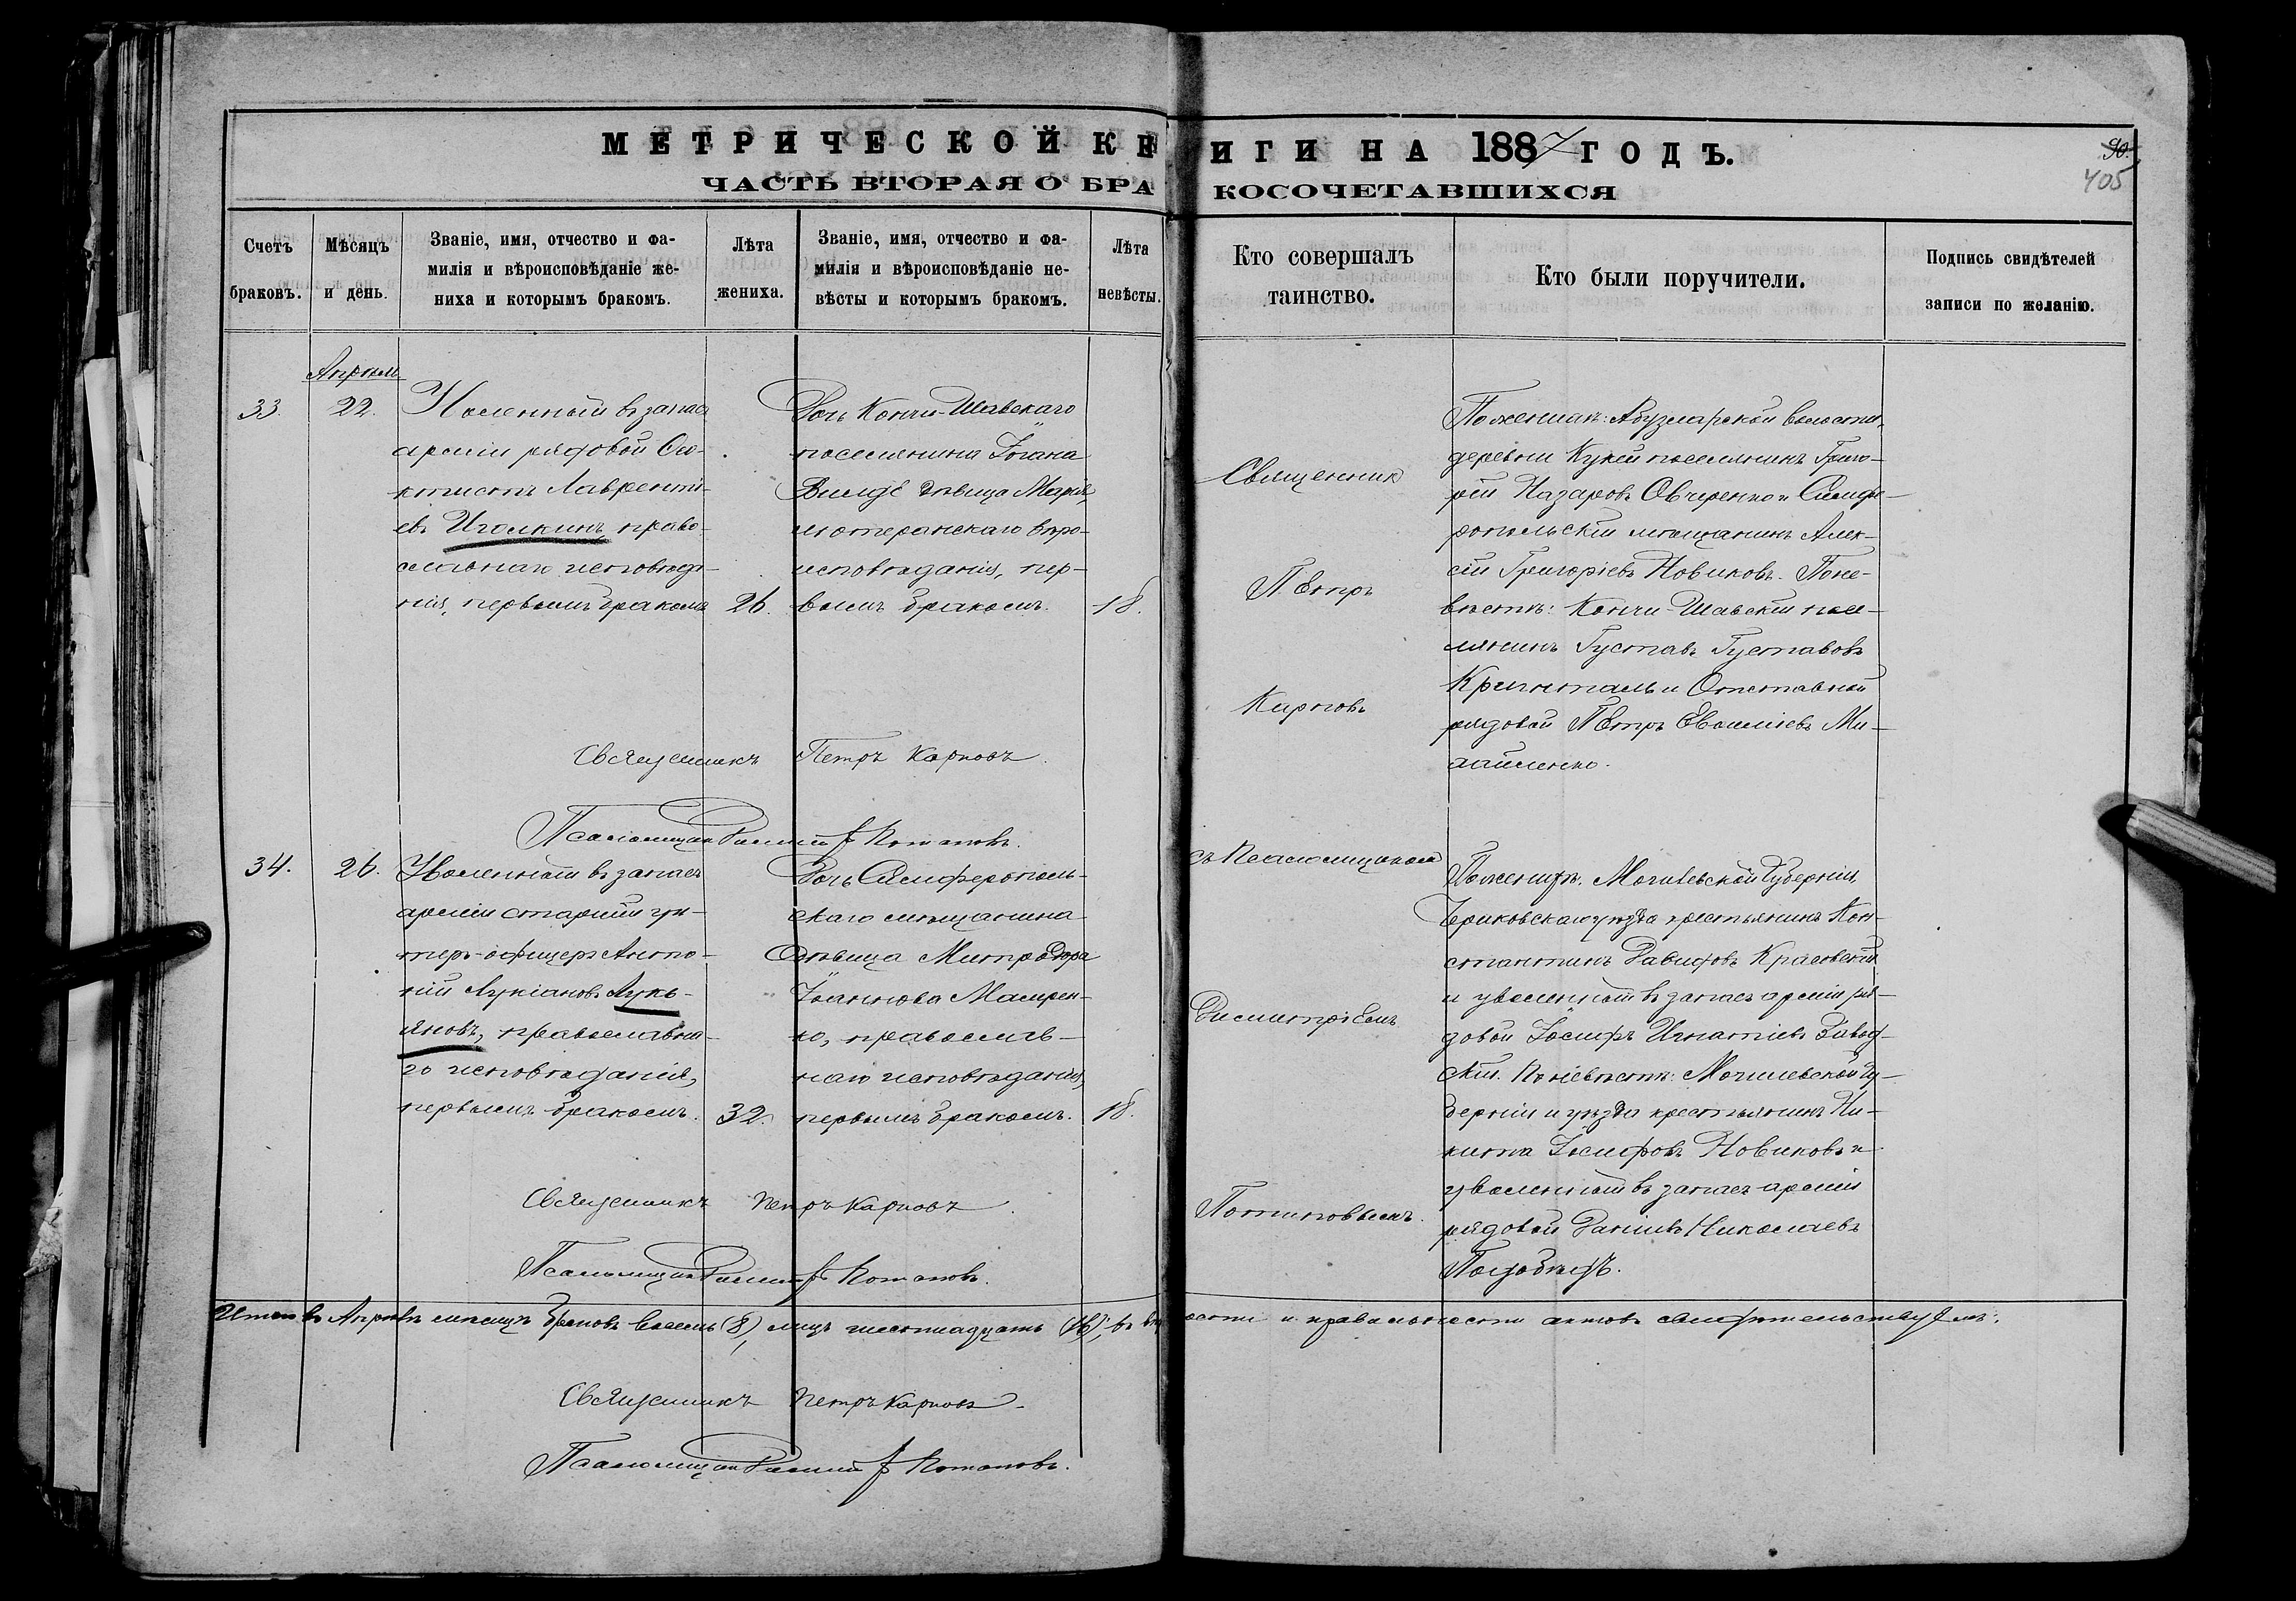 МЕТРИЧЕСКОЙ КНИГИ НА 1887 ГОДЪ.
ЧАСТЬ ВТОРАЯ О БРАКОСОЧЕТАВШИХСЯ
90.
405
Счетъ браковъ.
Мѣсяцъ и день.
Званіе, имя, отчество и фа-
милія и вѣроисповѣданіе же-
ниха и которымъ бракомъ.
Лѣта жениха.
Званіе, имя, отчество и фа-
милія и вѣроисповѣданіе не-
вѣсты и которымъ бракомъ.
Лѣта невѣсты.
Кто совершалъ
таинство.
Кто были поручители.
Подпись свидѣтелей
записи по желанію.
33.
Апрѣль
22.
Уволенный въ запасъ
арміи рядовой
Лаврентi-
евъ Иголкинъ, право-
славнаго исповѣда-
нія, первымъ бракомъ
26.
Дочь Кончи-Шавскаго
поселянина Іогана
Вилде дѣвица Марія,
лютеранскаго вѣро-
исповѣданія, пер-
вымъ бракомъ.
18.
Священникъ
Петръ
Карповъ
По женихѣ: Абузларской волости,
деревни поселянинъ Григо-
рій Назаровъ Овчеренко и Симфе-
ропольскій мѣщанинъ Алек-
сѣй Григоріевъ Новиковъ. По не-
вѣстѣ: Кончи-Шавскій посе-
лянинъ Густавъ Густавовъ
и Отставной
рядовой Петръ Ми-
хайленко.
Священникъ Петръ Карповъ.
Псаломщикъ Димитрій Потаповъ.
34.
26.
Уволенный въ запасъ
арміи старшій ун-
теръ-офицеръ Анто-
ній Лукіановъ Лукь-
яновъ, православна-
го исповѣданія,
первымъ бракомъ.
32.
Дочь Симферополь-
скаго мѣщанина
дѣвица Митродора
Іоаннова
ко, православ-
наго исповѣданія,
первымъ бракомъ.
18.
съ Псаломщикомъ
Димитріемъ
Потаповымъ.
По женихѣ: Могилевской Губерніи,
Чериковскаго уѣзда крестьянинъ Кон-
стантинъ Давидовъ Красовскій
и уволенный въ запасъ арміи ря-
довой Іосифъ Игнатіевъ Завод-
скій. По невѣстѣ: Могилевской Гу-
берніи и уѣзда крестьянинъ Ни-
кита Іосифовъ Новиковъ и
уволенный въ запасъ арміи
рядовой Даніилъ Николаевъ
Священникъ Петръ Карповъ.
Псаломщикъ Димитрій Потаповъ.
Итого въ Апрѣлѣ мѣсяцѣ браковъ восемь (8), лицъ шестнадцать (16); въ вѣрности и правильности актовъ свидѣтельствуемъ:
Священникъ Петръ Карповъ.
Псаломщикъ Димитрій Потаповъ.